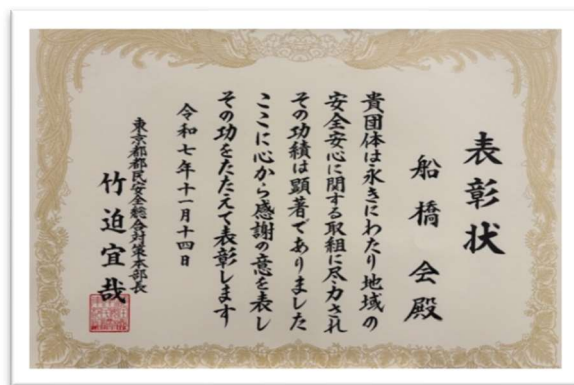 表彰状
船橋会殿
貴団体は永きにわたり地域の
安全安心に関する取組に尽力され
その功績は顕著でありました
ここに心から感謝の意を表し
その功をたたえて表彰します
令和七年十一月十四日
東京都都民安全総合対策本部長
竹迫宜哉